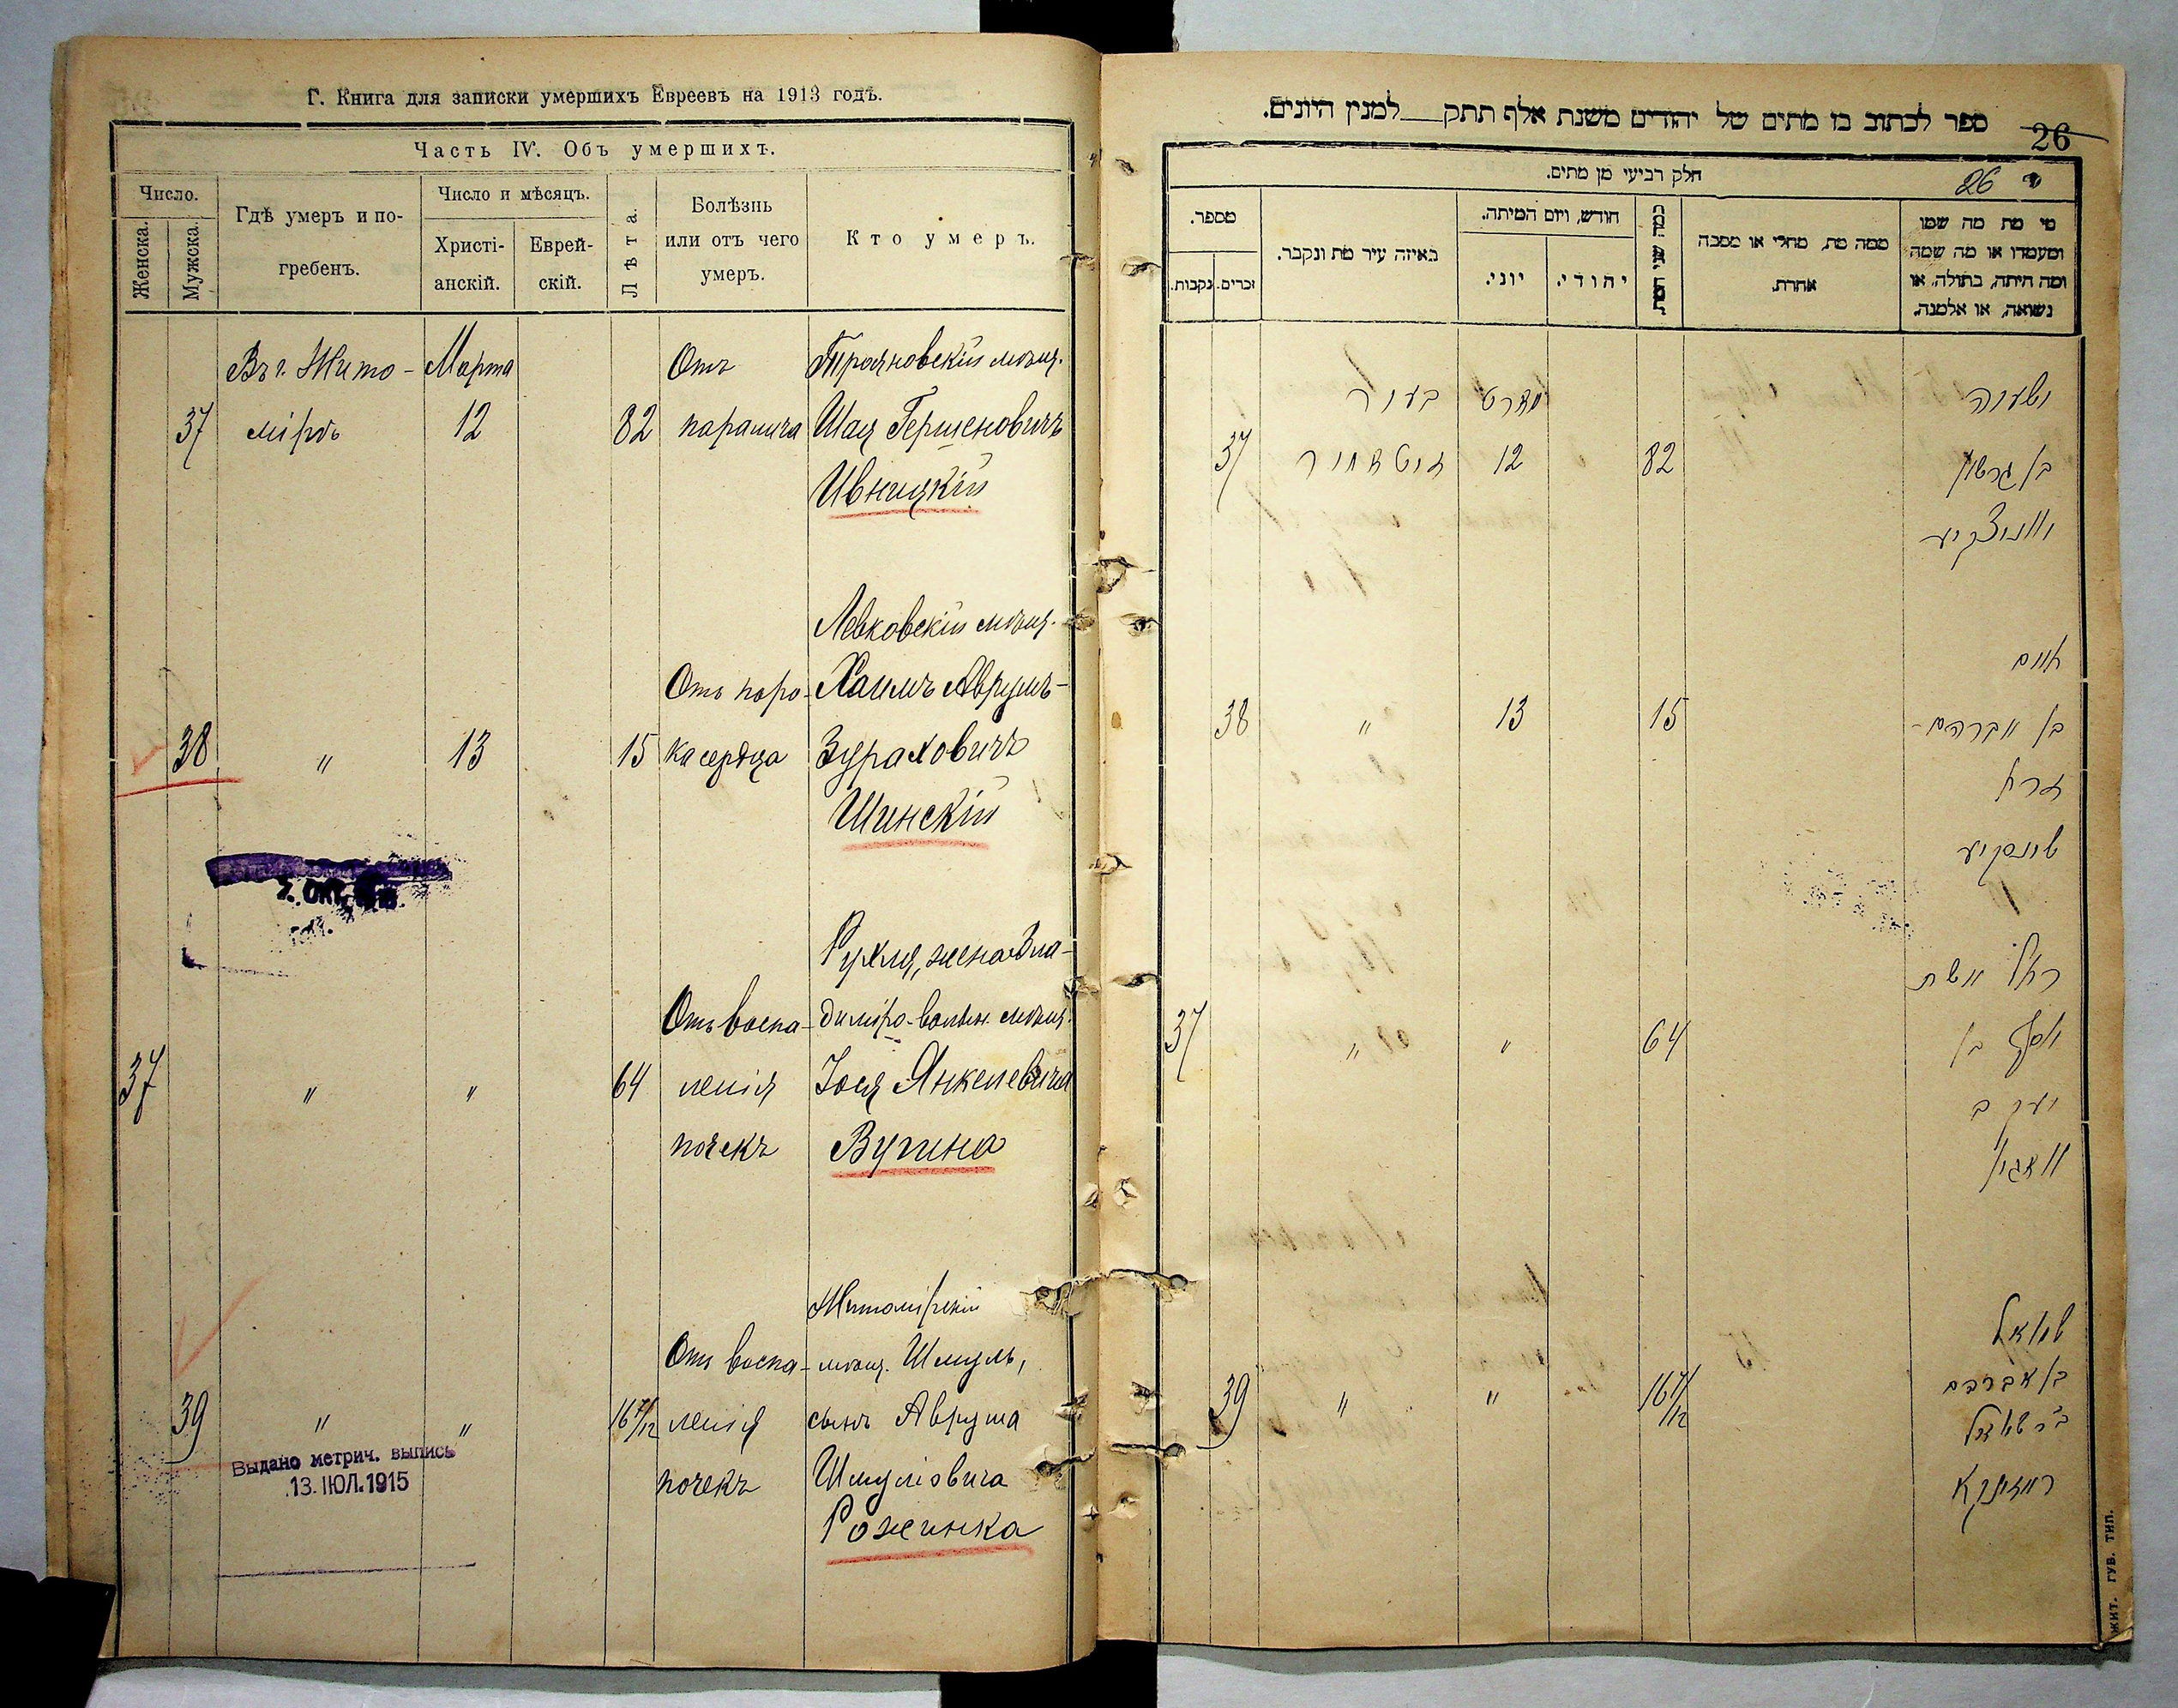 Г. Книга для записки умершихъ Евреевъ на 1913 годъ.
Часть IV. Объ умершихъ.
Число.
Женска.
Мужска.
Гдѣ умеръ и по-
гребенъ.
Число и мѣсяцъ.
Христі-
анскій.
Еврей-
скій.
Лѣта.
Болѣзнь
или отъ чего
умеръ.
Кто умеръ.
Въ г. Жито- Марта Отъ Трояновскій мѣщ.
37 мірѣ 12 82 паралича Шая Гершеновичъ
Ивницкій
Левковскій мѣщ.
Отъ поро- Хаимъ Аврумъ-
38 " 13 15 ка сердца Зураховичъ
Шинскій
Рухля, жена Вла-
Отъ воспа- диміро-волын. мѣщ.
37 " " 64 ленія Іося Янкелевича
почекъ Вугина
Житомірскій
Отъ воспа- мѣщ. Шмуль,
39 " " 16 7/12 ленія сынъ Аврума
почекъ Шмуліовича
Рожинка
Выдано метрич. выпись
13. ІЮЛ. 1915
ספר לכתוב בו מתים של יהודים משנת אלף תתק__למנין היונים.
26
חלק רביעי מן מתים.
26
מספר.
זכרים.
נקבות.
באיזה עיר מת ונקבר.
חודש, ויום המיתה.
יוני.
יהודי.
כמה שני המת
ממה מת, מחלי או מסבה
אחרת.
מי מת מה שמו
ומעמדו או מה שמה
ומה היתה, בתולה, או
נשואה, או אלמנה.
בעיר מארט ישעיה
37 זיטאמיר 12 82 בן גרשון
איוניצקיער
חיים
38 " 13 15 בן אברהם-
זרח
שינסקיער
רחל אשת
37 " " 64 יוסף בן
יעקב
וואגין
שמואל
39 " " 16 7/12 בן אברהם
ב"ר שמואל
ראזינקא
ЖИТ. ГУБ. ТИП.